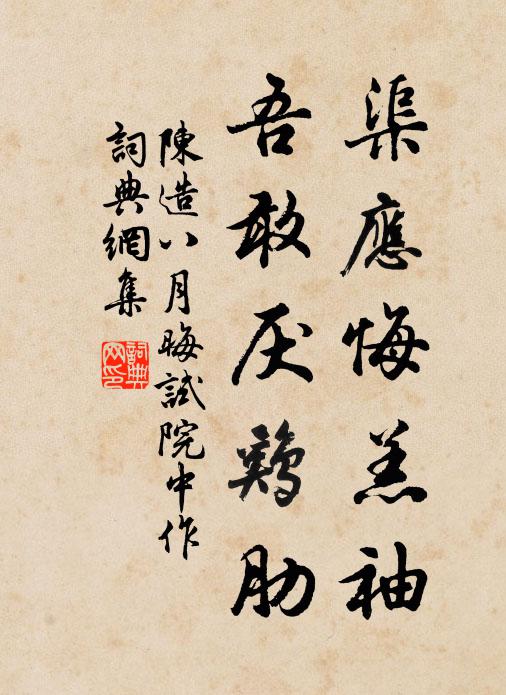 渠應悔羔袖
吾敢厌鷄肋
陳造八月晦試院中作
詞典網集
詞典网印